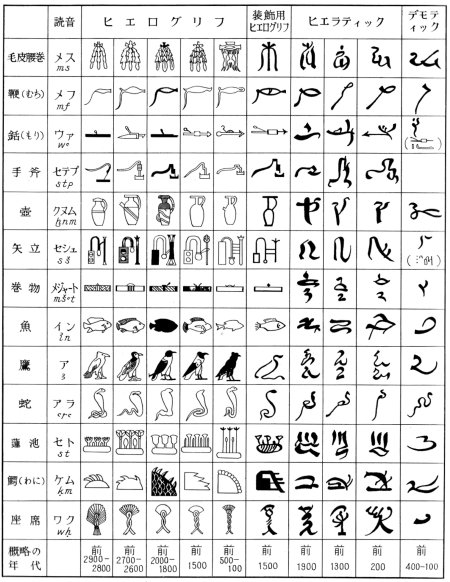 読音 ヒエログリフ 装飾用ヒエログリフ ヒエラティック デモティック
毛皮腰巻 メス ms
鞭(むち) メフ mf
銛(もり) ヴァ
手斧 セテプ stp
壺 クヌム
矢立 セシュ
(〃例)
巻物 メジャート
魚 イン in
鷹 ア
蛇 アラ
蓮池 セト
鰐(わに) ケム km
座席 ワク
概略の年代 前2900-2800 前2700-2600 前2000-1800 前1500 前500-100 前1500 前1900 前1300 前200 前400-100